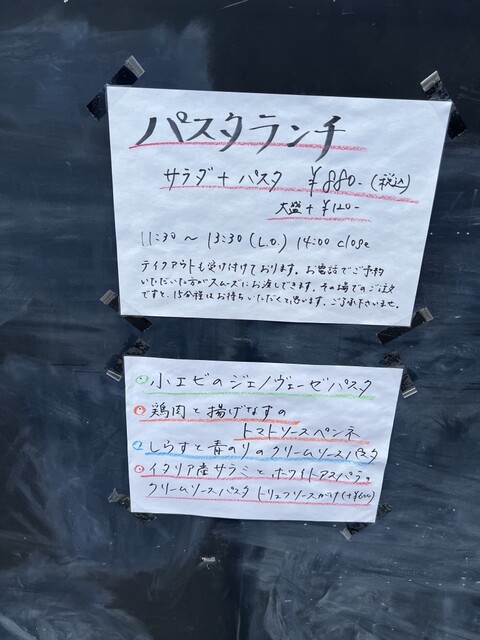 パスタランチ
サラダ + パスタ ¥880-(税込)
大盛 + ¥120-
11:30 ~ 13:30 (L.O.) 14:00 close
テイクアウトも受け付けております。お電話でご予約
いただいた方がスムーズにお渡しできます。その場でのご注文
ですと、15分程はお待ちいただくと思います。ご了承下さいませ。
小エビのジェノヴェーゼパスタ
鶏肉と揚げなすの
トマトソースペンネ
しらすと青のりのクリームソースパスタ
イタリア産サラミとホワイトアスパラの
クリームソースパスタ トリュフソースがけ(+¥600)